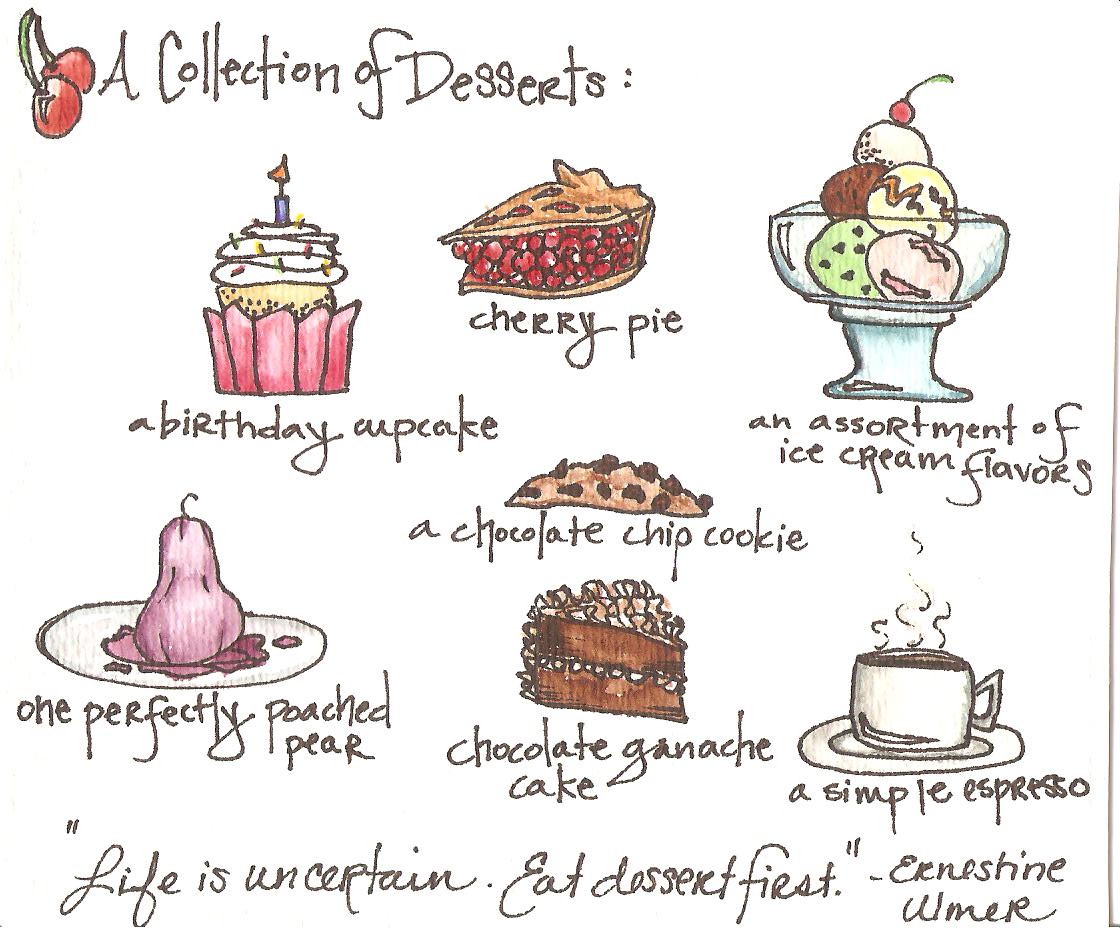 A Collection of Desserts:
a birthday cupcake
cherry pie
an assortment of
ice cream flavors
a chocolate chip cookie
one perfectly poached
pear
chocolate ganache
cake
a simple espresso
"Life is uncertain. Eat dessert first." - Ernestine
Ulmer